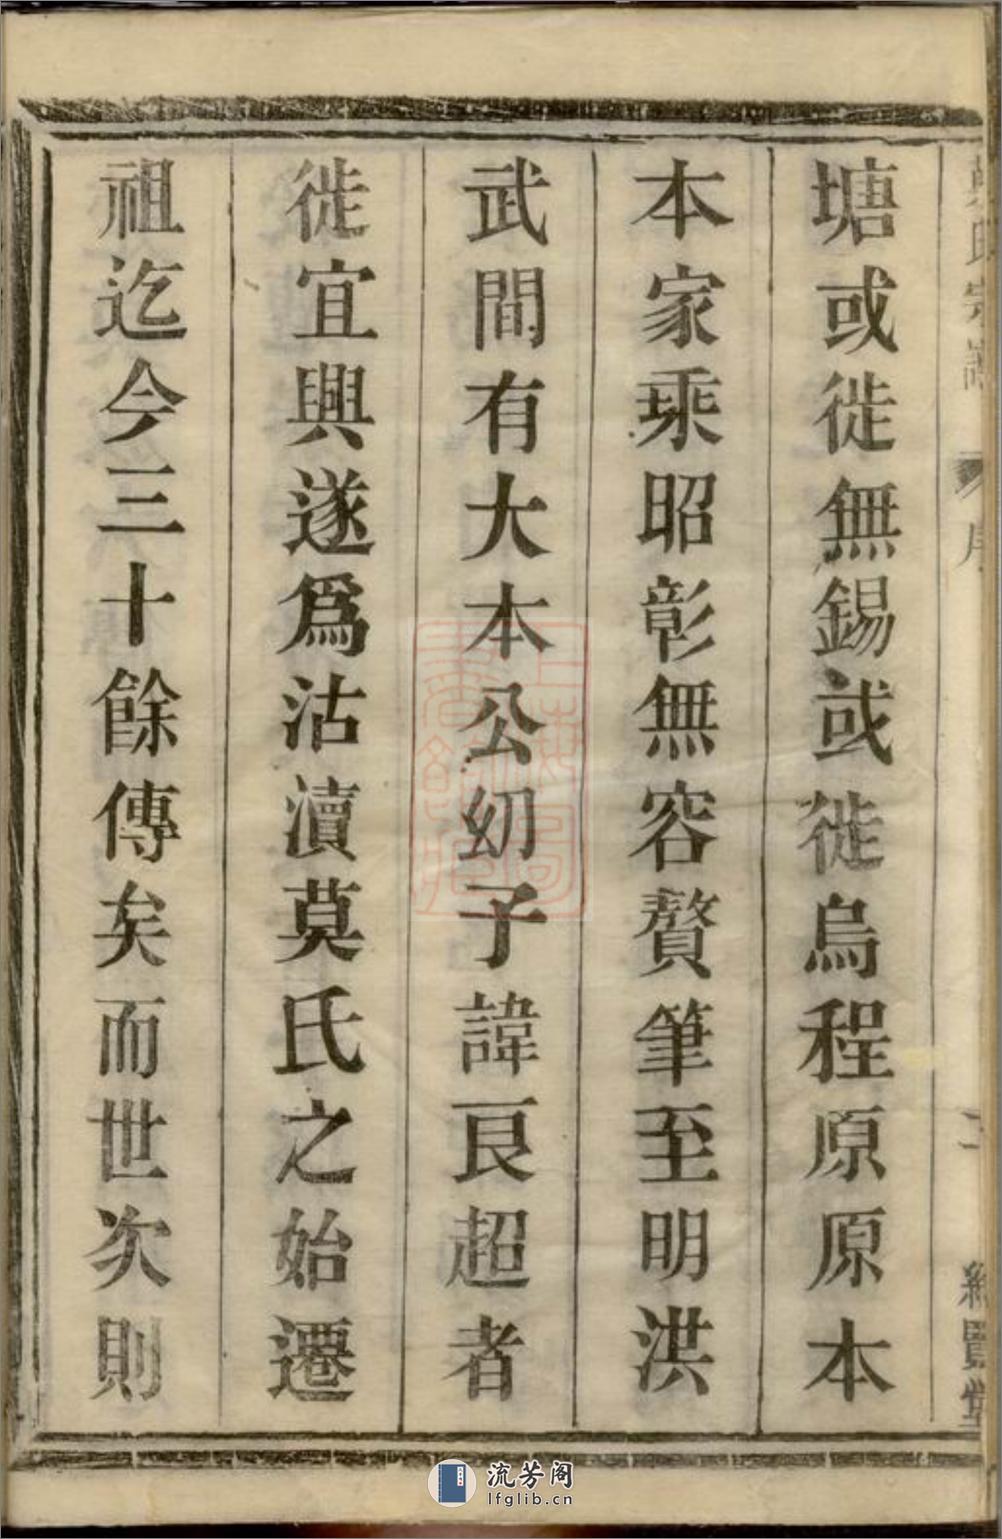 塘或徙無錫或徙烏程原原本
本家乘昭彰無容贅筆至明洪
武間有大本公幼子諱良超者
徙宜興遂爲沽瀆莫氏之始遷
祖迄今三十餘傳矣而世次則
流芳阁
lfglib.cn